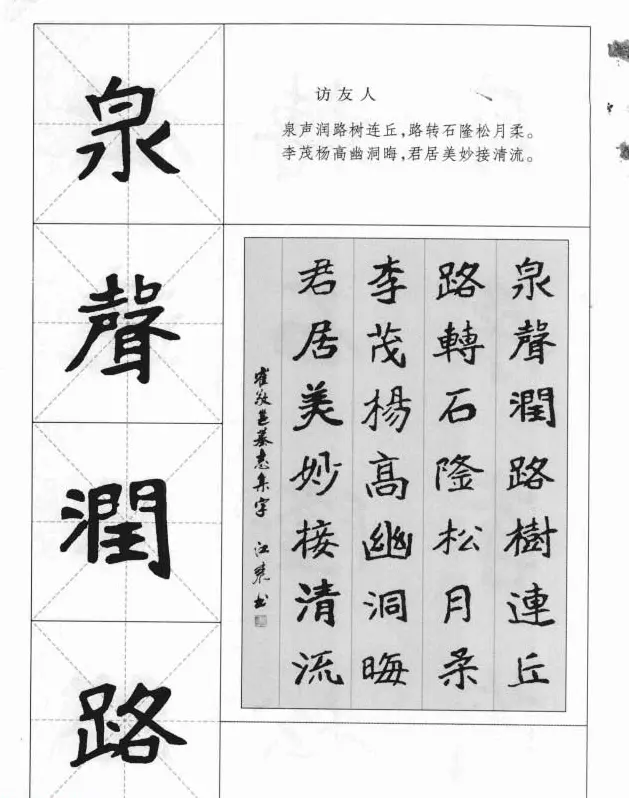 泉
聲
潤
路
访友人
泉声润路树连丘，路转石隆松月柔。
李茂杨高幽洞晦，君居美妙接清流。
泉聲潤路樹連丘
路轉石隆松月柔
李茂楊高幽洞晦
君居美妙接清流
崔敬邕墓志集字
江 书